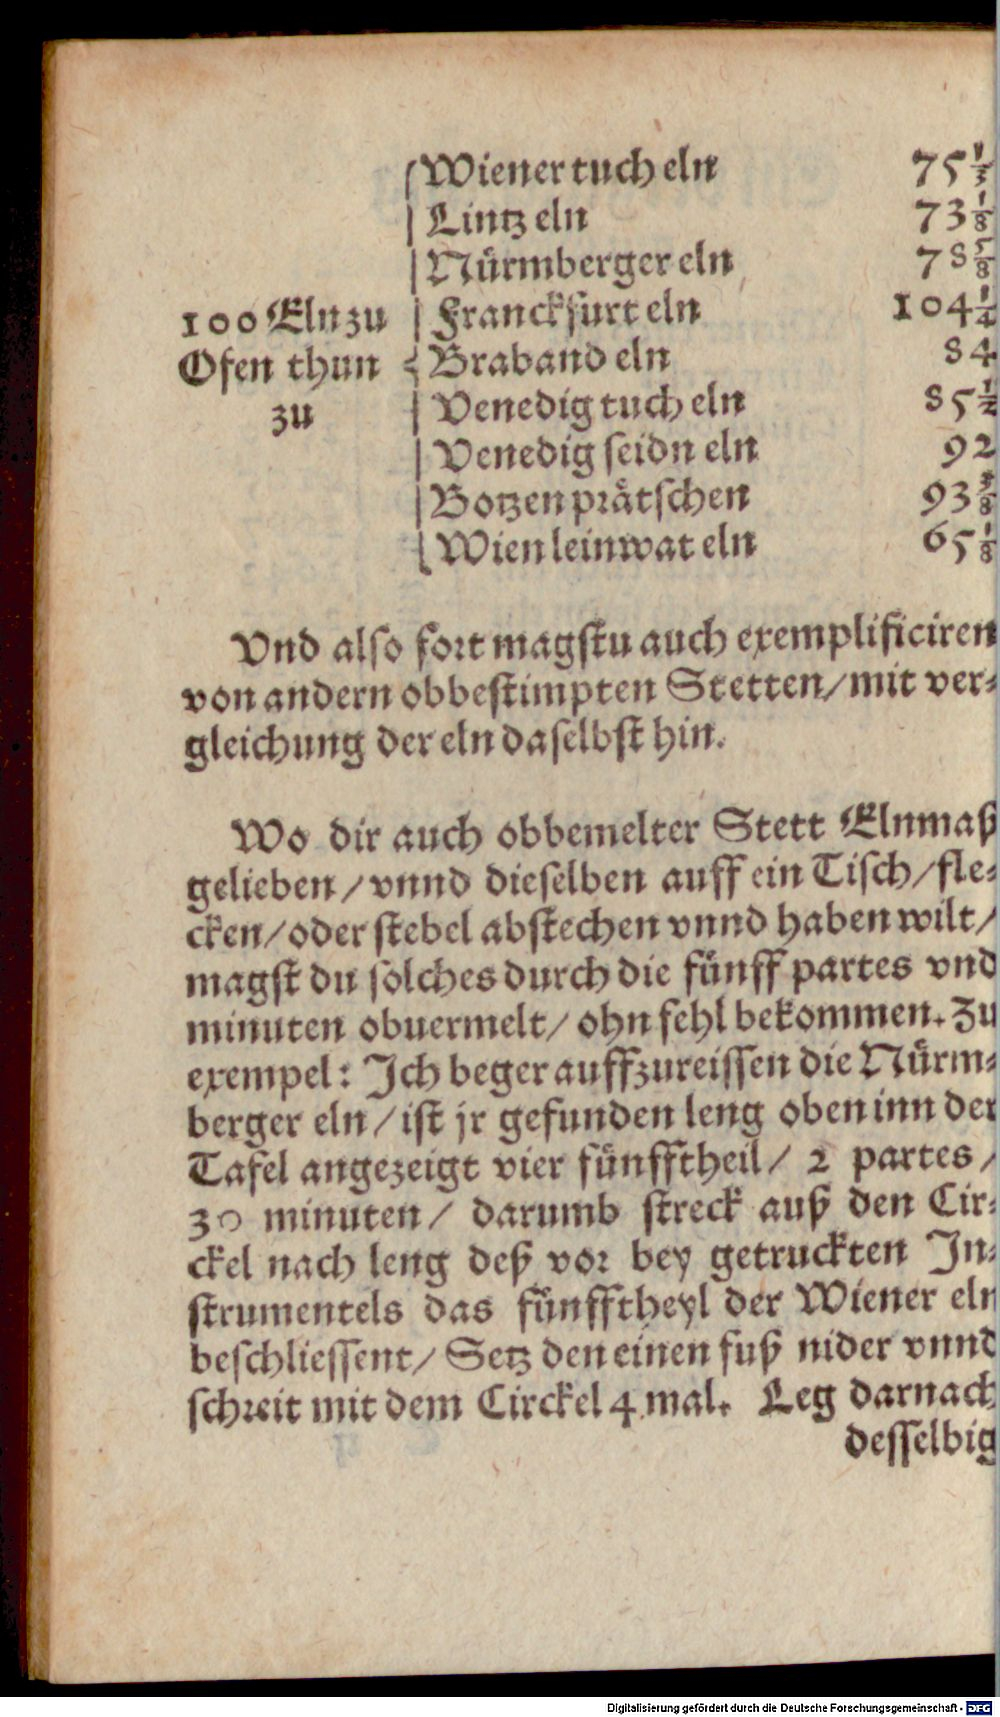 Wiener tuch eln 75 1/3
Lintz eln 73 1/8
Nürmberger eln 78 5/8
100 Eln zu Franckfurt eln 104 1/4
Ofen thun Braband eln 84
zu Venedig tuch eln 85 1/2
Venedig seidn eln 92
Botzen prätschen 93
Wien leinwat eln 65 1/8
Vnd also fort magstu auch exemplificiren
von andern obbestimpten Stetten/mit ver⸗
gleichung der eln daselbst hin.
Wo dir auch obbemelter Stett Elnmaß
gelieben/vnnd dieselben auff ein Tisch/fle⸗
cken/oder stebel abstechen vnnd haben wilt/
magst du solches durch die fünff partes vnd
minuten obuermelt/ohn fehl bekommen. Zu
exempel: Ich beger auffzureissen die Nürm⸗
berger eln/ist jr gefunden leng oben inn der
Tafel angezeigt vier fünfftheil/ 2 partes/
30 minuten/ darumb streck auß den Cir⸗
ckel nach leng deß vor bey getruckten In⸗
strumentels das fünfftheyl der Wiener eln
beschliessent/Setz den einen fuß nider vnnd
schreit mit dem Circkel 4 mal. Leg darnach
desselbig
Digitalisierung gefördert durch die Deutsche Forschungsgemeinschaft - DFG